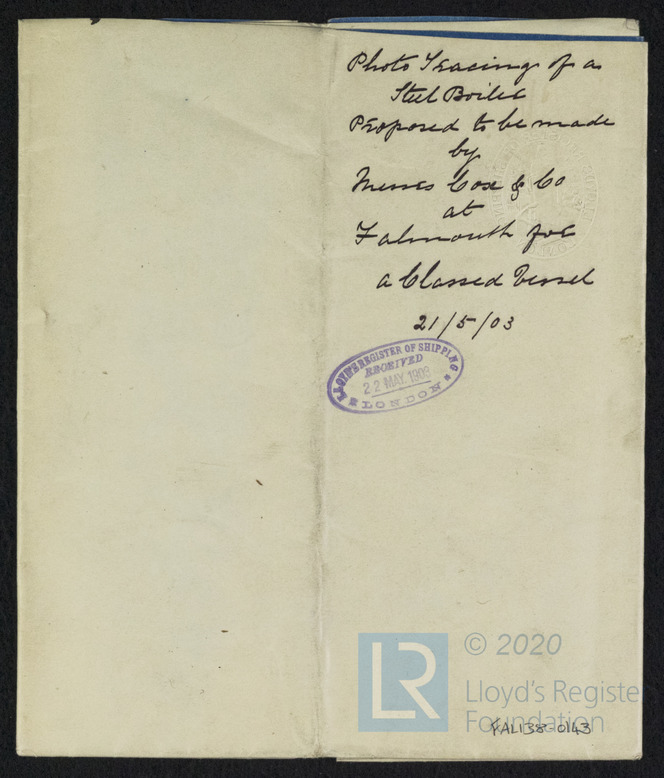 Photo Tracing of a
Steel Boiler
Proposed to be made
by
Messrs Cox & Co
at
Falmouth for
a Classed Vessel
21/5/03
LLOYD'S REGISTER OF SHIPPING
RECEIVED
22 MAY. 1903
LONDON
LR
© 2020
Lloyd's Registe
Foundation
FAL138-0143